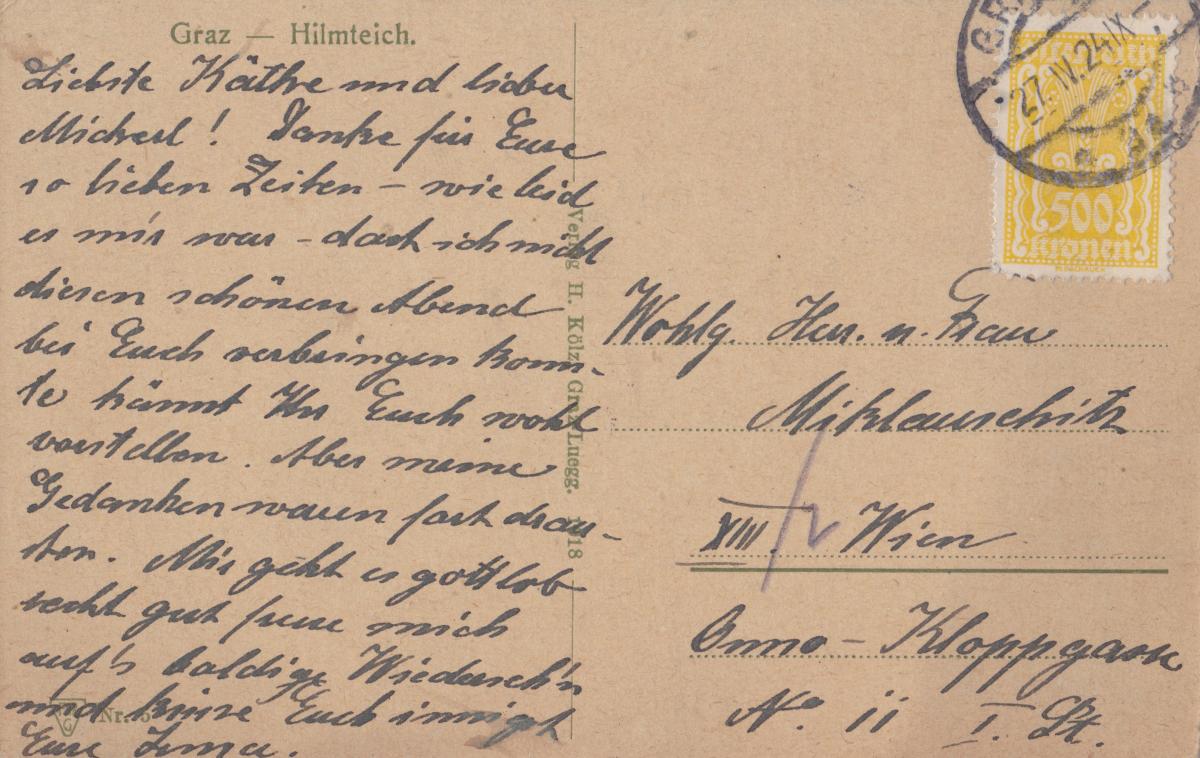 Graz — Hilmteich.
Liebste Käthe und lieber
Micherl! Danke für Eure
so lieben Zeilen – wie leid
es mir war – dass ich nicht
diesen schönen Abend
bei Euch verbringen konn-
te könnt Ihr Euch wohl
vorstellen. Aber meine
Gedanken waren fort drau-
sten. Mir geht es gottlob
recht gut freue mich
auf's baldige Wiederseh'n
und küsse Euch innigst
Eure Irma.
Nr. 5
Verlag H. Kölz, Graz-Luegg. 1918
27.IV.24
500
Kronen
Wohlg. Herr. u. Frau
Miklauschitz
XIII. Wien
Onno-Kloppgasse
No 11 I. St.